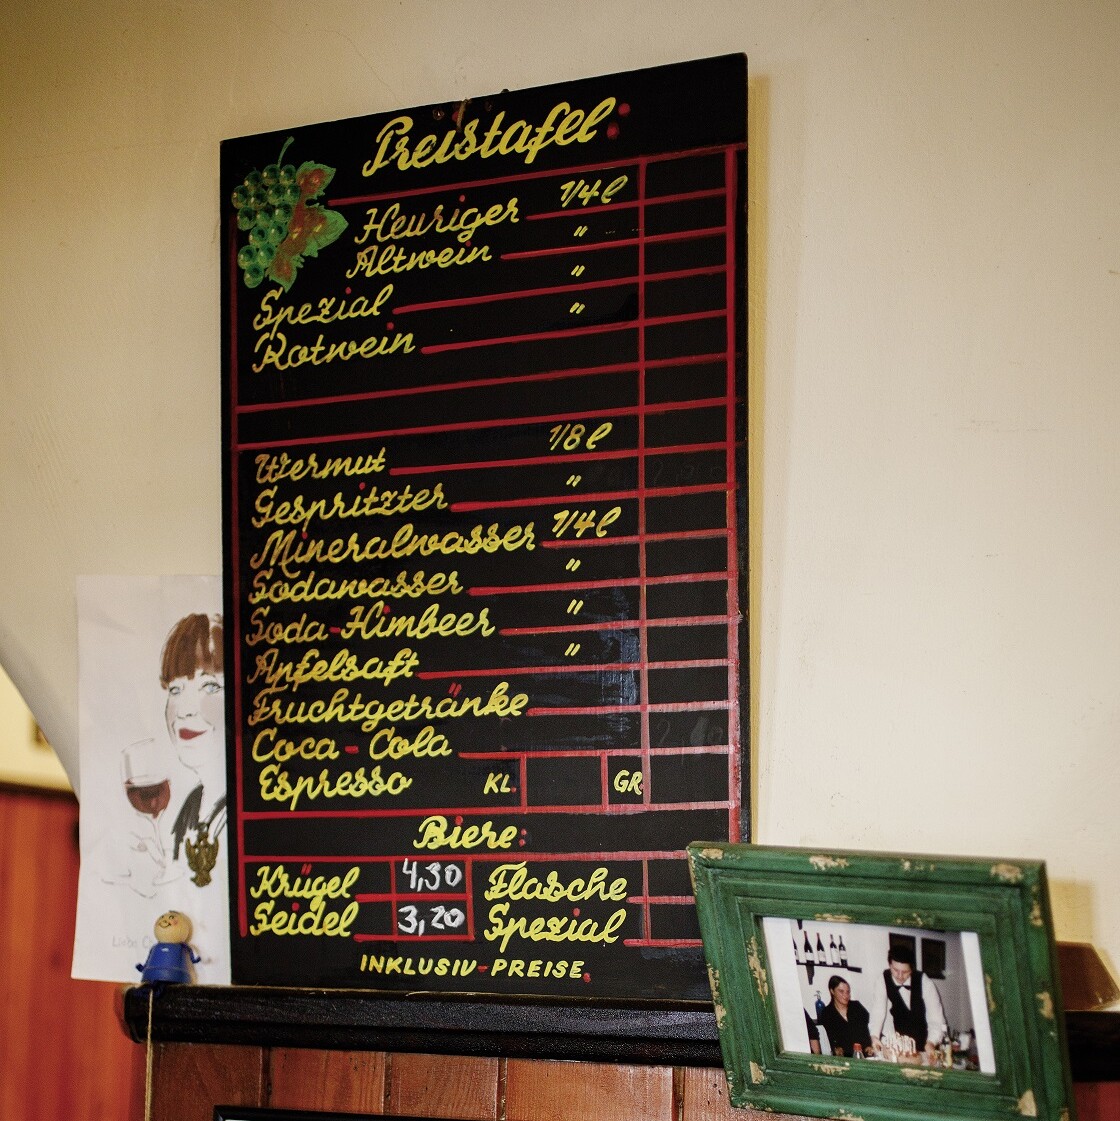 Preistafel:
Heuriger 1/4 l
Altwein "
Spezial "
Rotwein "
Wermut 1/8 l
Gespritzter "
Mineralwasser 1/4 l
Sodawasser "
Soda-Himbeer "
Apfelsaft "
Fruchtgetränke
Coca-Cola
Espresso KL. GR.
Biere:
Krügel 4,30 Flasche
Seidel 3,20 Spezial
INKLUSIV-PREISE.